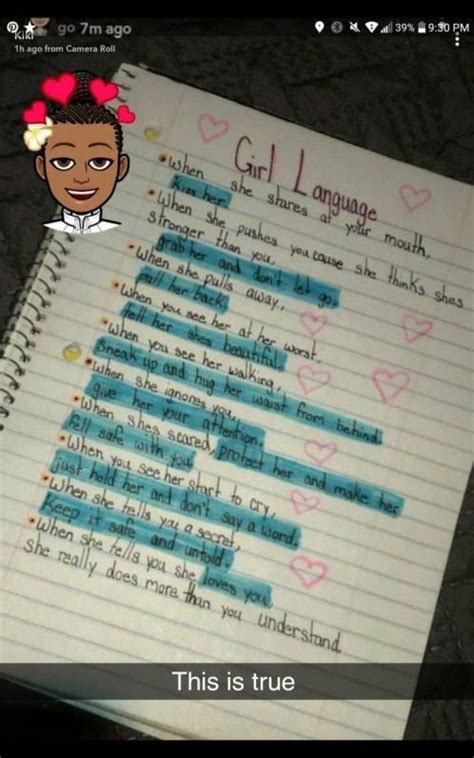 Kiki
go 7m ago
39% 9:30 PM
1h ago from Camera Roll
Girl Language
•When she stares at your mouth,
Kiss her
•When she pushes you cause she thinks shes
stronger than you,
grab her and don't let go.
•When she pulls away,
Pull her back
•When you see her at her worst,
Tell her shes beautiful.
•When you see her walking,
Sneak up and hug her waist from behind.
•When she ignores you,
give her your attention.
•When shes scared, protect her and make her
fell safe with you
•When you see her start to cry,
just hold her and don't say a word.
•When she tells you a secret,
Keep it safe and untold.
•When she tells you she loves you,
she really does more than you understand.
This is true